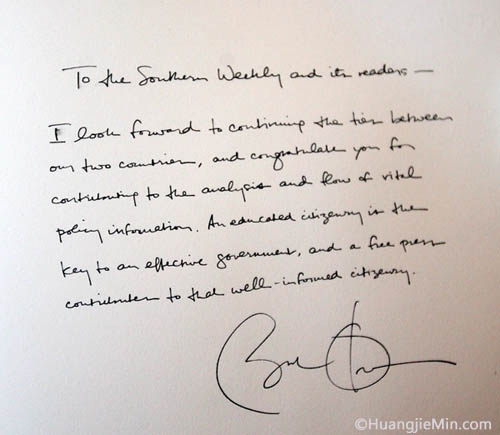 To the Southern Weekly and its readers —
I look forward to continuing the ties between
our two countries, and congratulate you for
contributing to the analysis and flow of vital
policy information. An educated citizenry is the
key to an effective government, and a free press
contributes to that well-informed citizenry.
©HuangjieMin.com